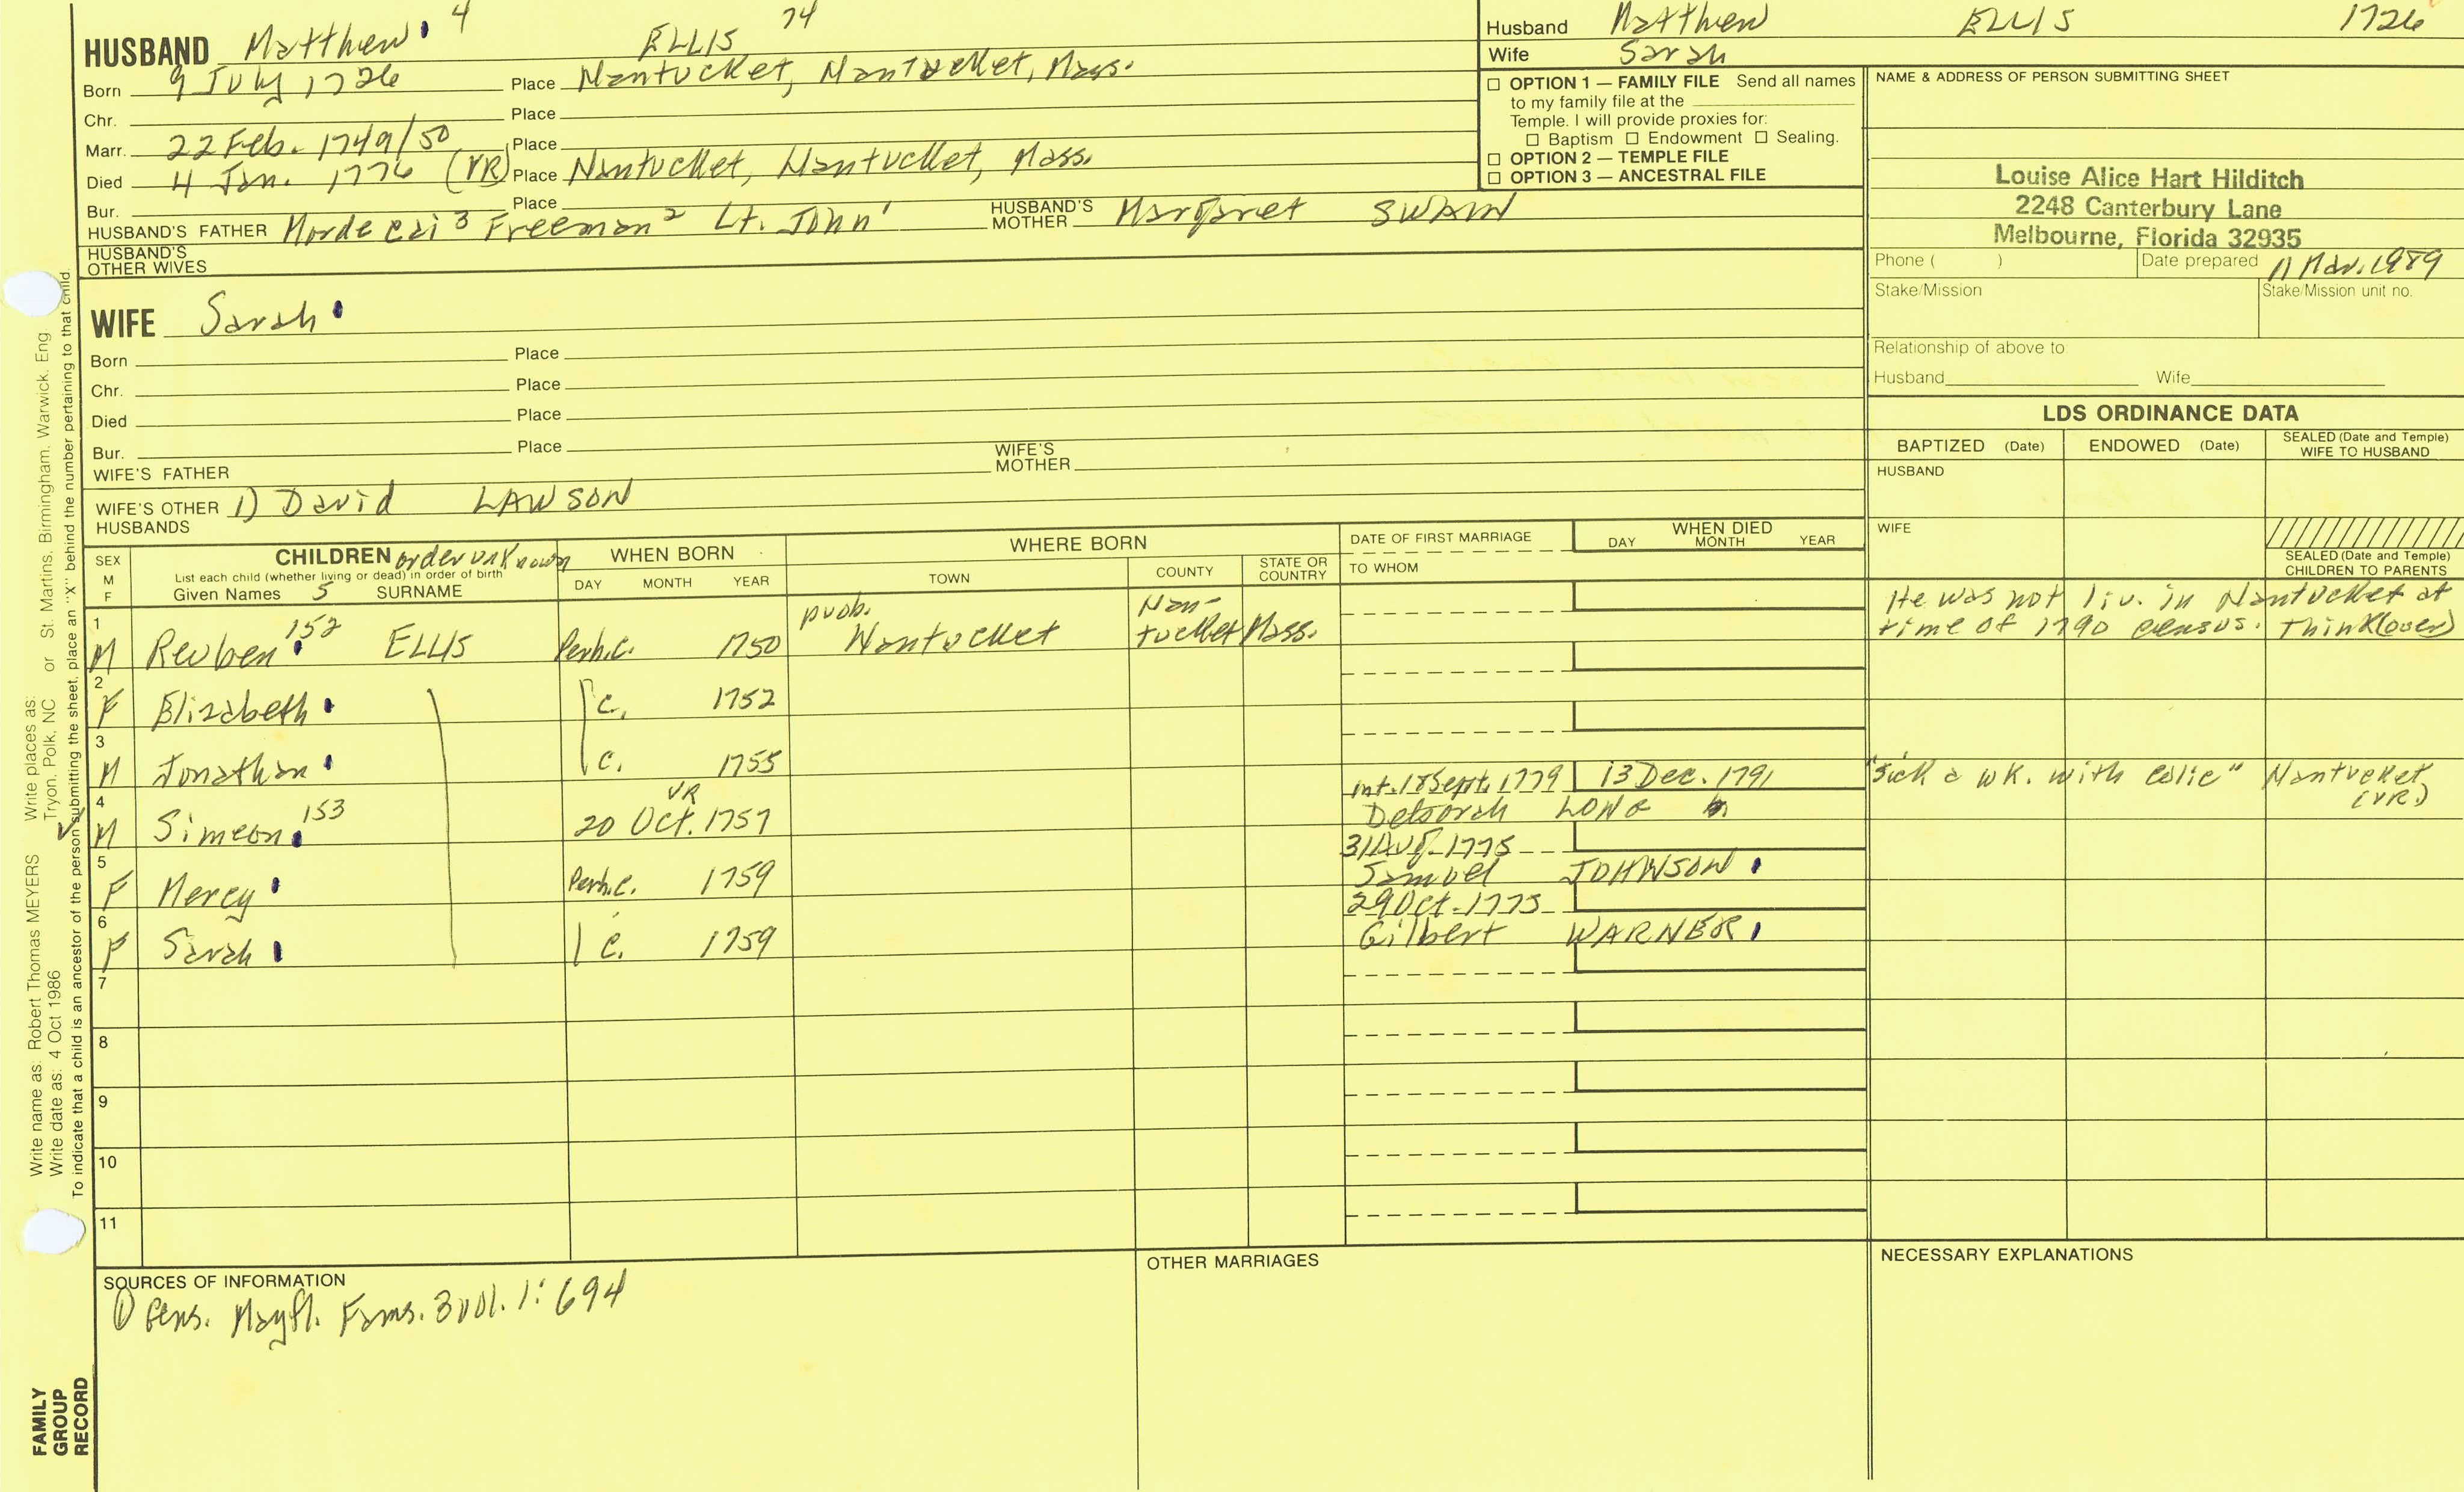 HUSBAND Matthew 4 ELLIS 74
Born 9 July 1726 Place Nantucket, Nantucket, Mass.
Chr. Place
Marr. 22 Feb. 1749/50 Place
Died 4 Jan. 1776 (VR) Place Nantucket, Nantucket, Mass.
Bur. Place
HUSBAND'S FATHER Mordecai 3 Freeman 2 Lt. John 1 HUSBAND'S MOTHER Margaret SWAIN
HUSBAND'S OTHER WIVES
Husband Matthew ELLIS 1726
Wife Sarah
☐ OPTION 1 — FAMILY FILE Send all names
to my family file at the
Temple. I will provide proxies for:
☐ Baptism ☐ Endowment ☐ Sealing.
☐ OPTION 2 — TEMPLE FILE
☐ OPTION 3 — ANCESTRAL FILE
NAME & ADDRESS OF PERSON SUBMITTING SHEET
Louise Alice Hart Hilditch
2248 Canterbury Lane
Melbourne, Florida 32935
Phone ( ) Date prepared 11 Mar. 1989
Stake/Mission Stake/Mission unit no.
Relationship of above to
Husband Wife
WIFE Sarah
Born Place
Chr. Place
Died Place
Bur. Place
WIFE'S FATHER WIFE'S MOTHER
WIFE'S OTHER HUSBANDS 1) David LAWSON
LDS ORDINANCE DATA
BAPTIZED (Date) ENDOWED (Date) SEALED (Date and Temple) WIFE TO HUSBAND
HUSBAND
WIFE
SEALED (Date and Temple) CHILDREN TO PARENTS
SEX M F
CHILDREN order unknown
List each child (whether living or dead) in order of birth
Given Names 5 SURNAME
WHEN BORN
DAY MONTH YEAR
WHERE BORN
TOWN COUNTY STATE OR COUNTRY
DATE OF FIRST MARRIAGE
TO WHOM
WHEN DIED
DAY MONTH YEAR
1 M Reuben 152 ELLIS Perh.c. 1750 prob. Nantucket Nan-tucket Mass.
He was not liv. in Nantucket at
time of 1790 census. Think (over)
2 F Elizabeth c. 1752
3 M Jonathan c. 1755
4 M Simeon 153 20 Oct. 1757 VR int. 18 Sept. 1779 13 Dec. 1791
Deborah LONG
"sick a wk. with colic" Nantucket
(VR.)
5 F Mercy Perh.c. 1759 31 Aug. 1775
Samuel JOHNSON
6 F Sarah c. 1759 29 Oct. 1775
Gilbert WARNER
7
8
9
10
11
SOURCES OF INFORMATION
① Gens. Mayfl. Fams. 3 vol. 1:694
OTHER MARRIAGES
NECESSARY EXPLANATIONS
Write name as: Robert Thomas MEYERS Write places as:
Write date as: 4 Oct 1986 Tryon, Polk, NC or St. Martins, Birmingham, Warwick, Eng
To indicate that a child is an ancestor of the person submitting the sheet, place an "X" behind the number pertaining to that child.
FAMILY
GROUP
RECORD